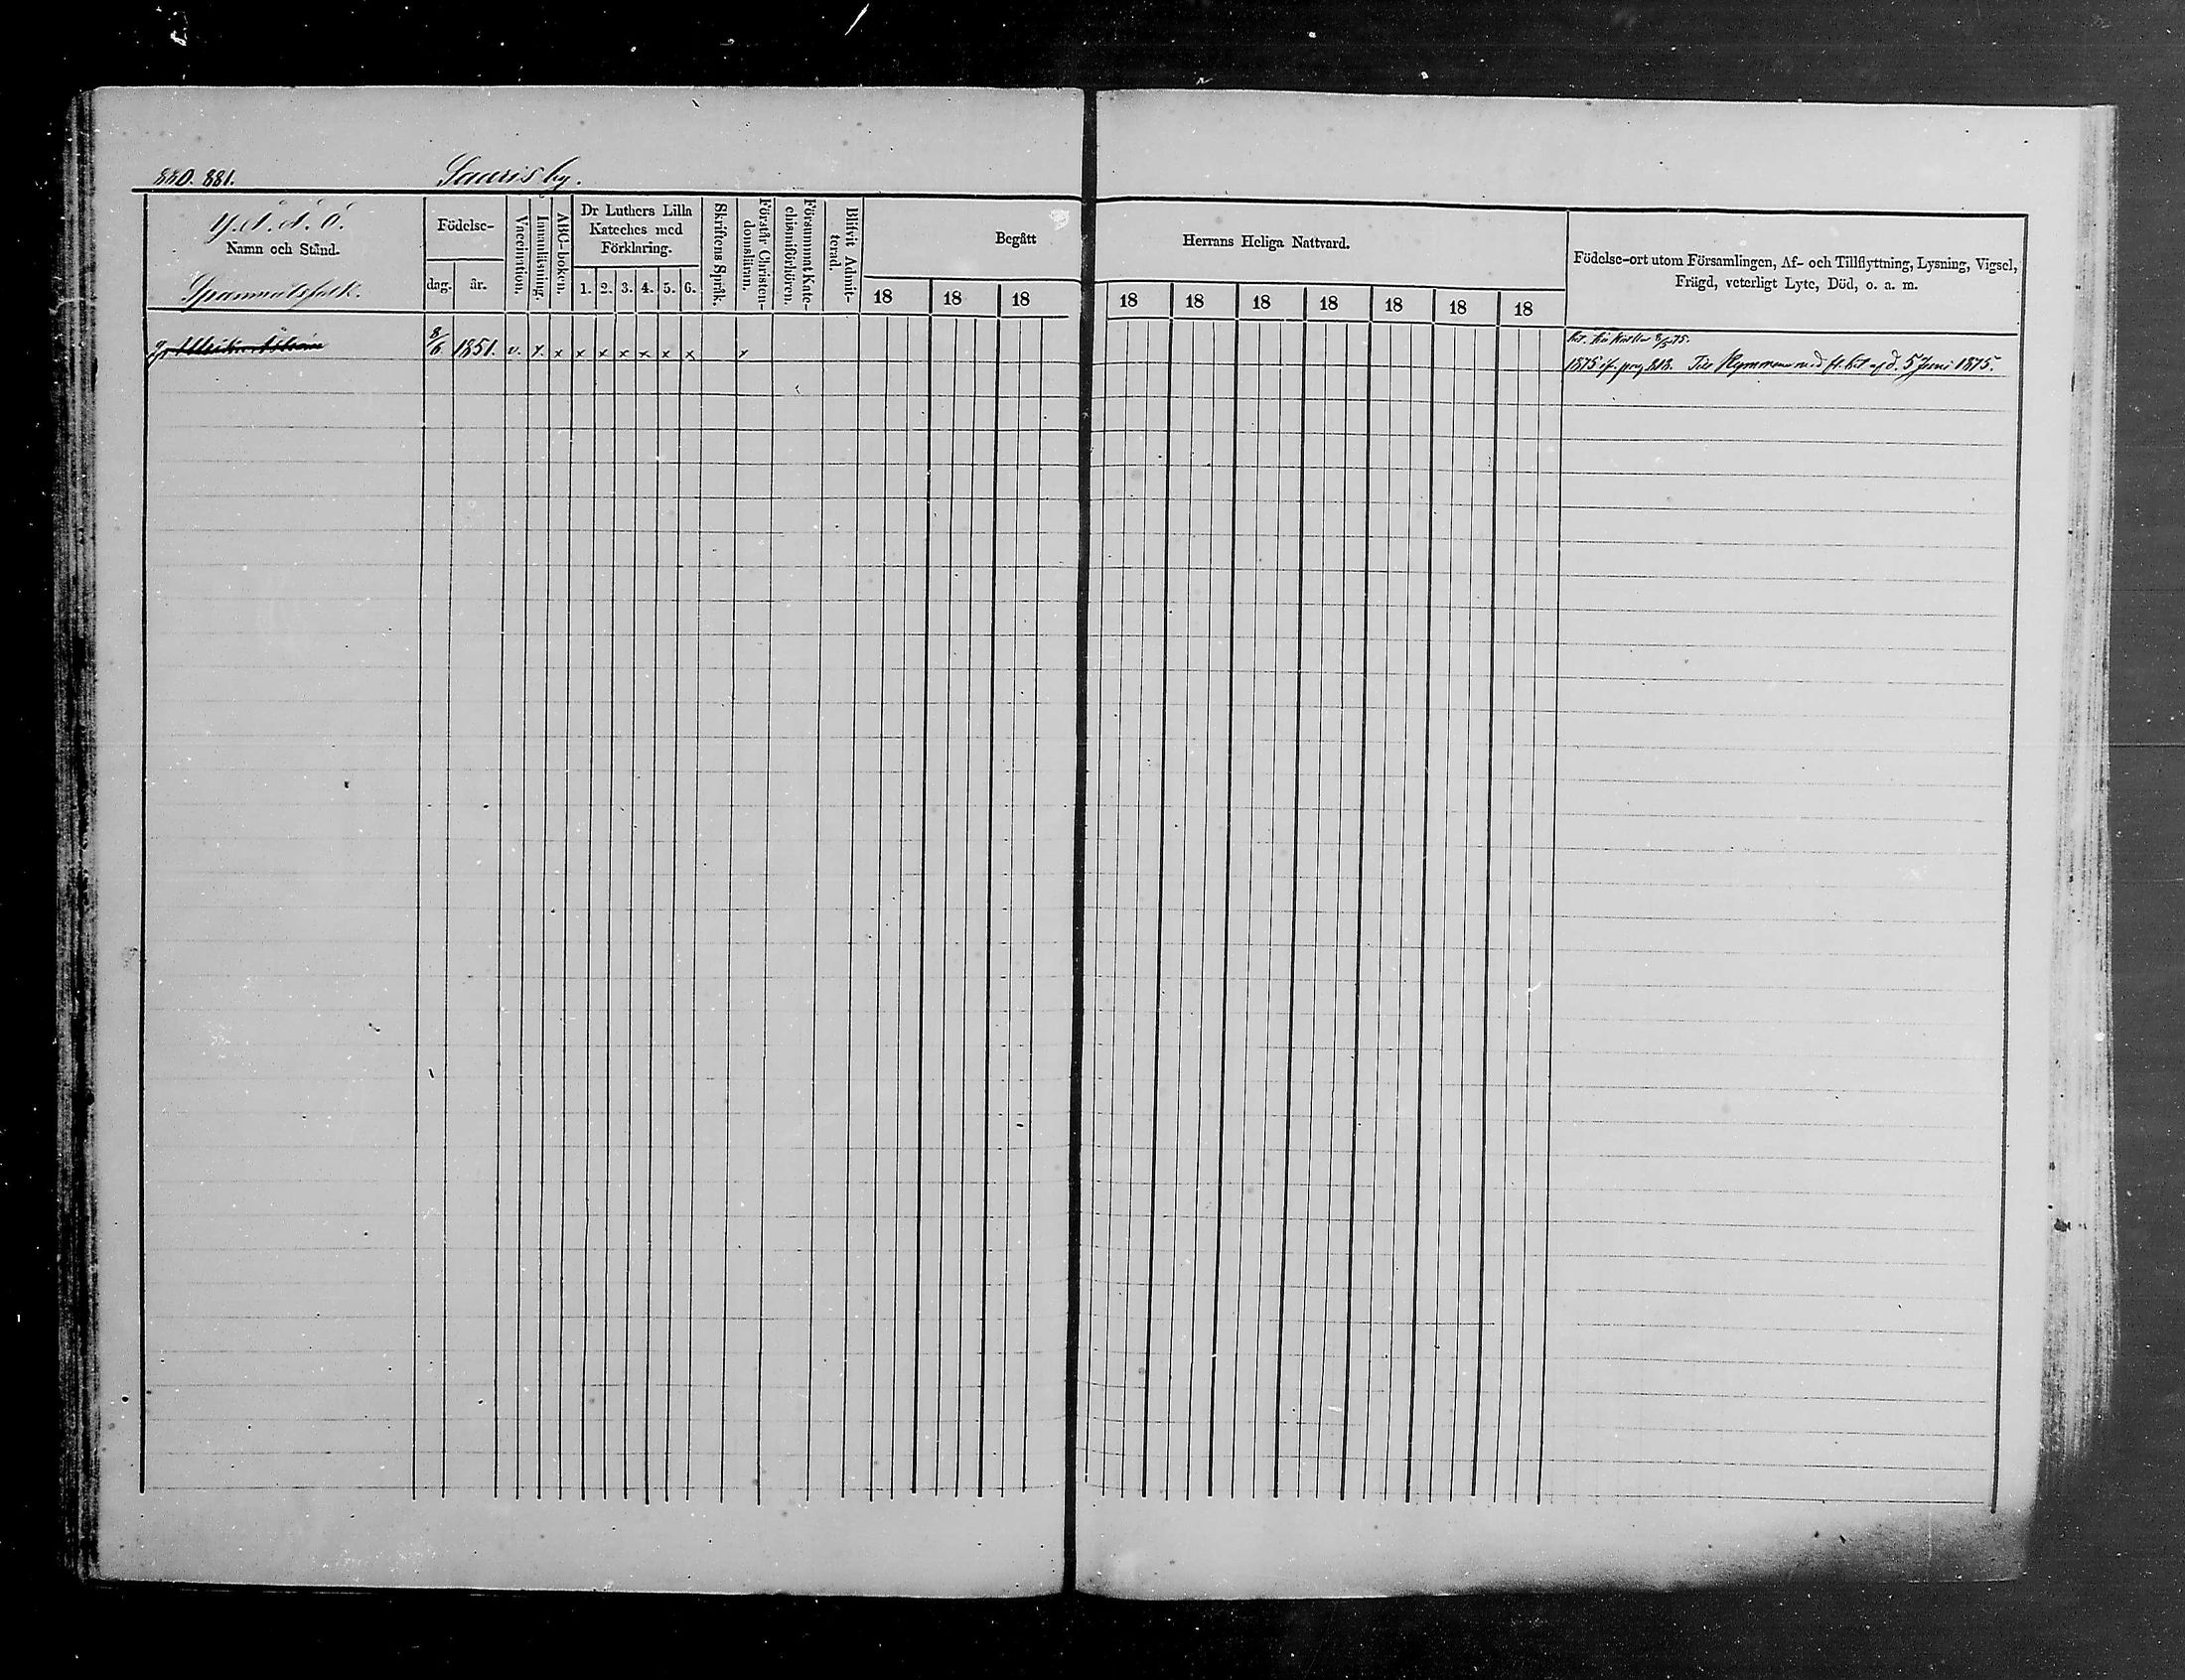 880. 881.
Sauris by.
Namn och Stånd.
Spanmålsfolk.
Födelse-
dag.
år.
Vaccination.
Innanläsning.
ABC-boken.
Dr Luthers Lilla
Kateches med
Förklaring.
1. 2. 3. 4. 5. 6.
Skriftens Språk.
Förstår Christen-
domsläran.
Försummat Kate-
chismiförhören.
Blifvit Admit-
terad.
Begått
Herrans Heliga Nattvard.
18 18 18 18 18 18 18 18 18 18
Födelse-ort utom Församlingen, Af- och Tillflyttning, Lysning, Vigsel,
Frägd, veterligt Lyte, Död, o. a. m.
8/6 1851. v. x x x x x x x x x
8/5 75.
1875 if. pag 818. Till Kymmene med fl. bet af d. 5 Juni 1875.